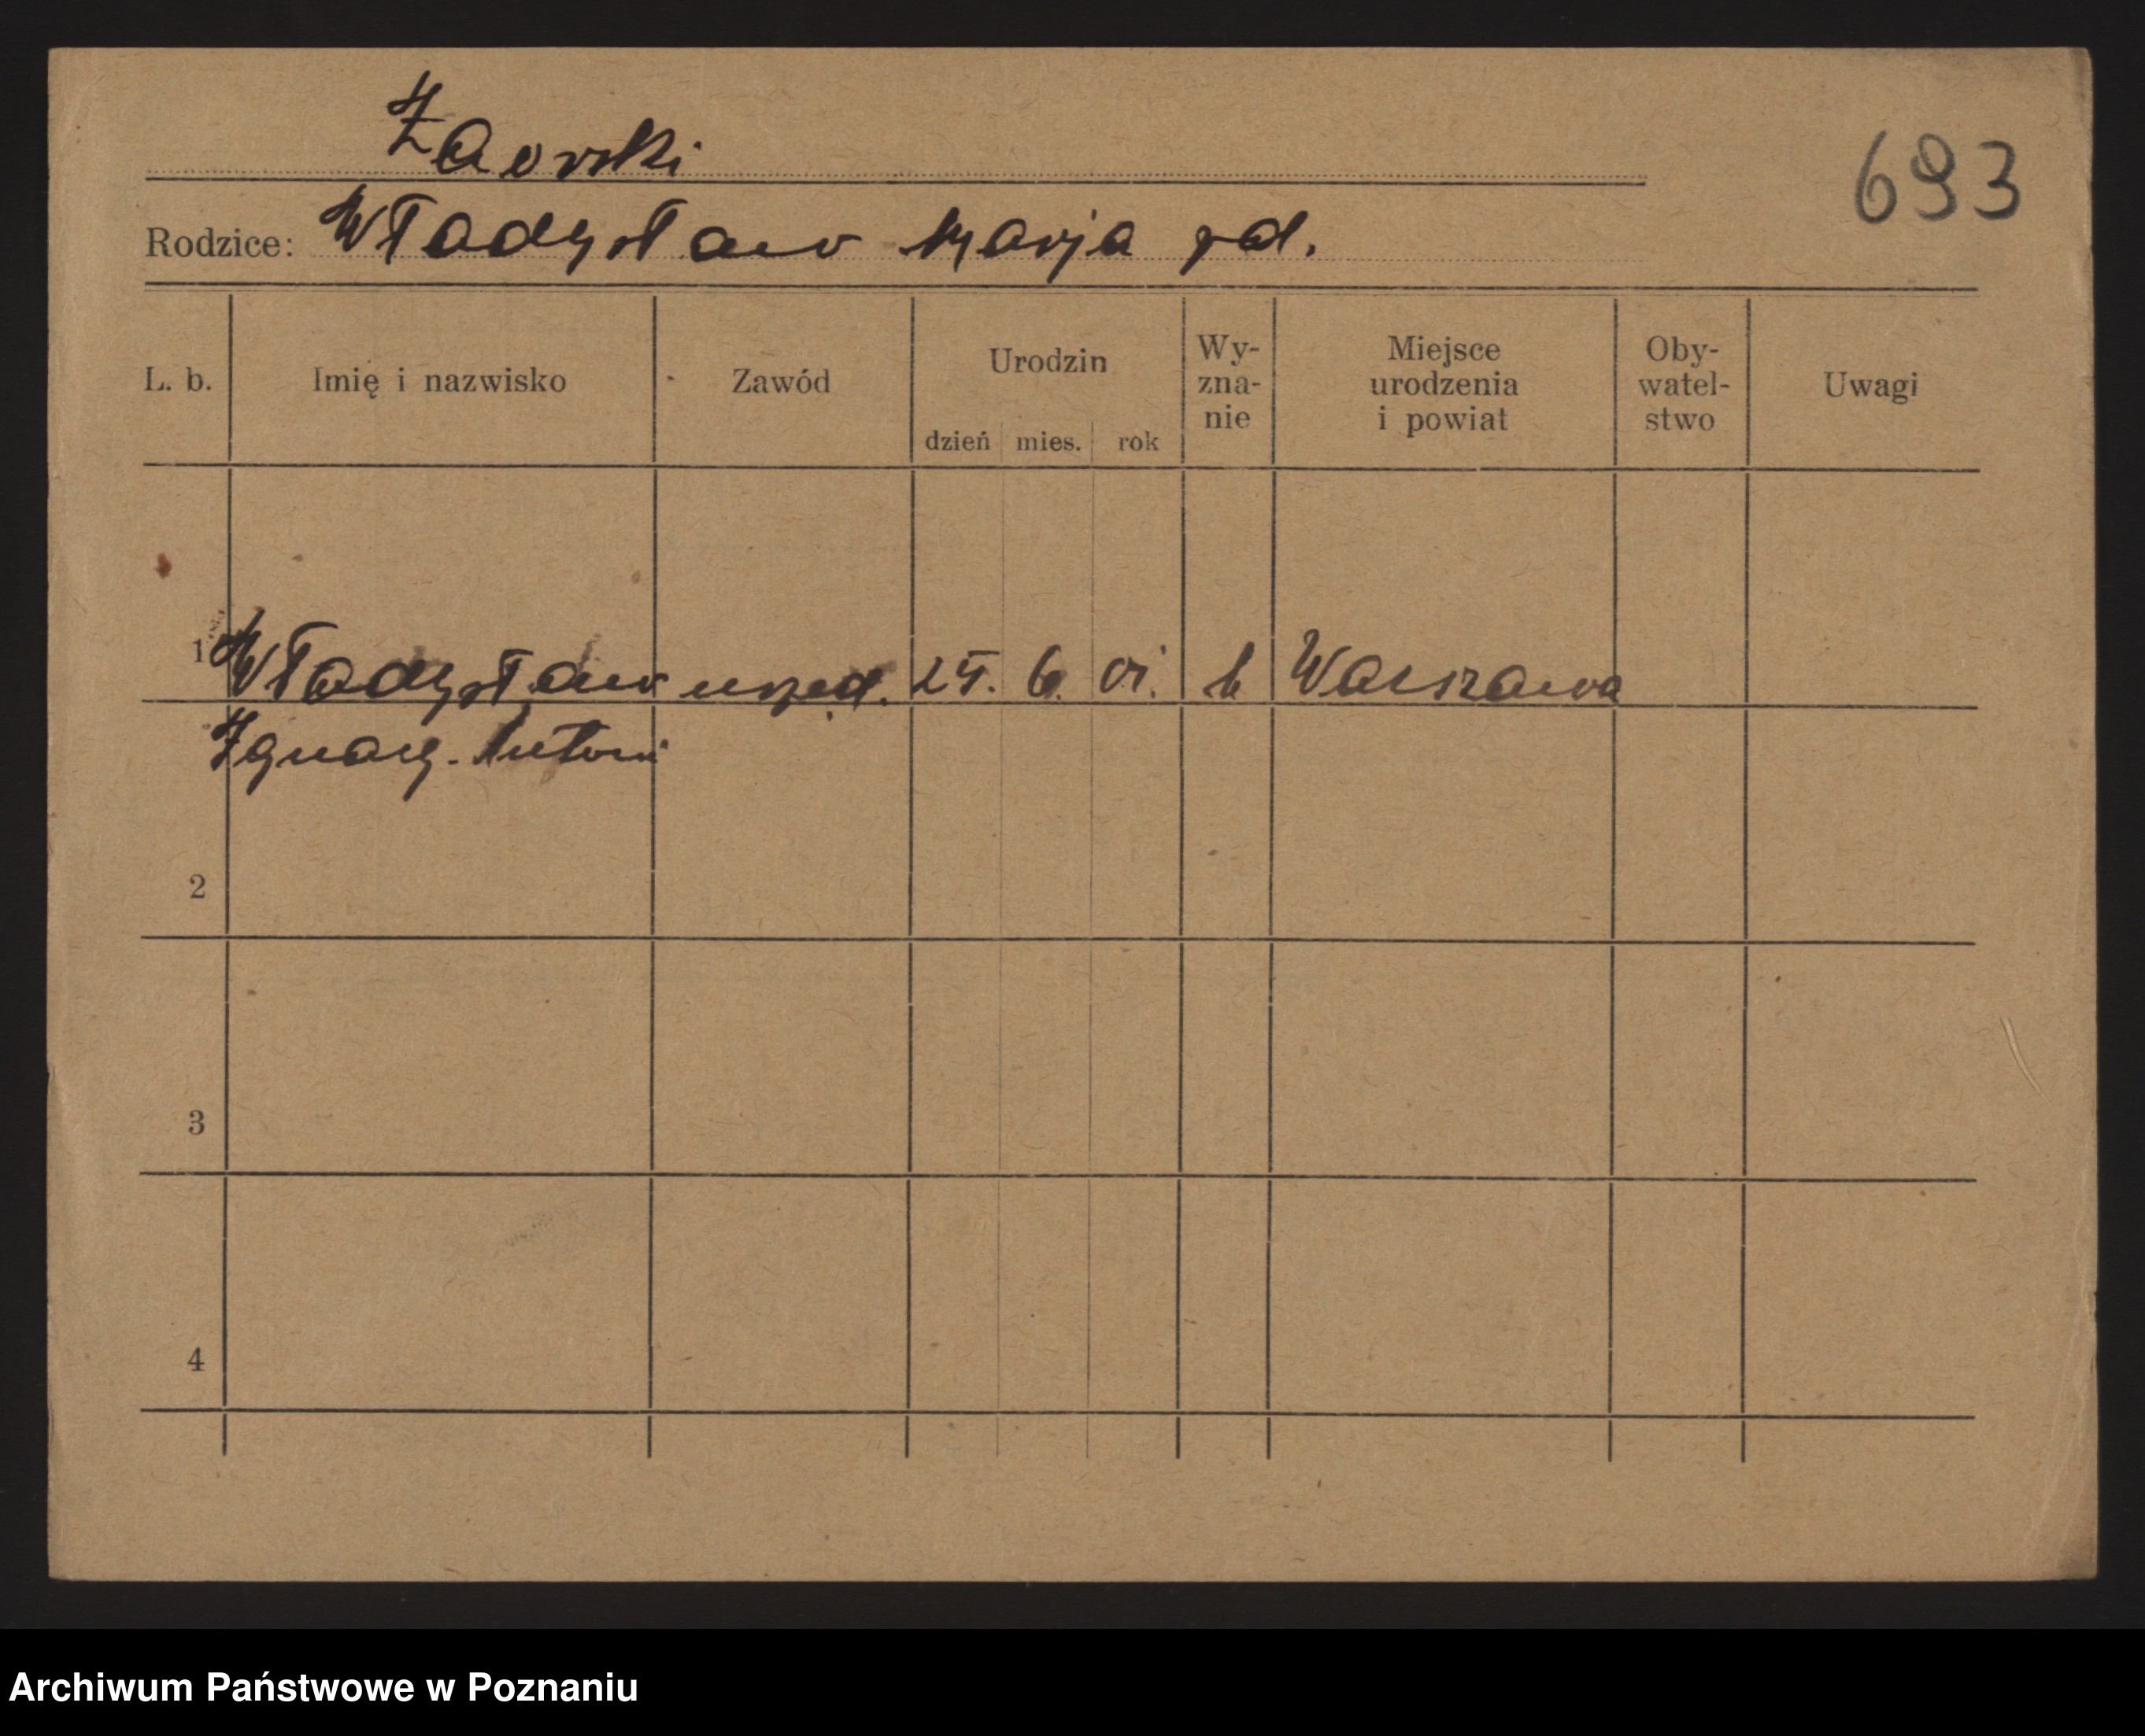 Zaorski
693
Rodzice: Władysław Marja rd.
L. b. Imię i nazwisko Zawód Urodzin dzień mies. rok Wy-zna-nie Miejsce urodzenia i powiat Oby-watel-stwo Uwagi
1 Władysław urzęd. 25. 6. 01. k Warszawa
Ignacy. Antoni
2
3
4
Archiwum Państwowe w Poznaniu